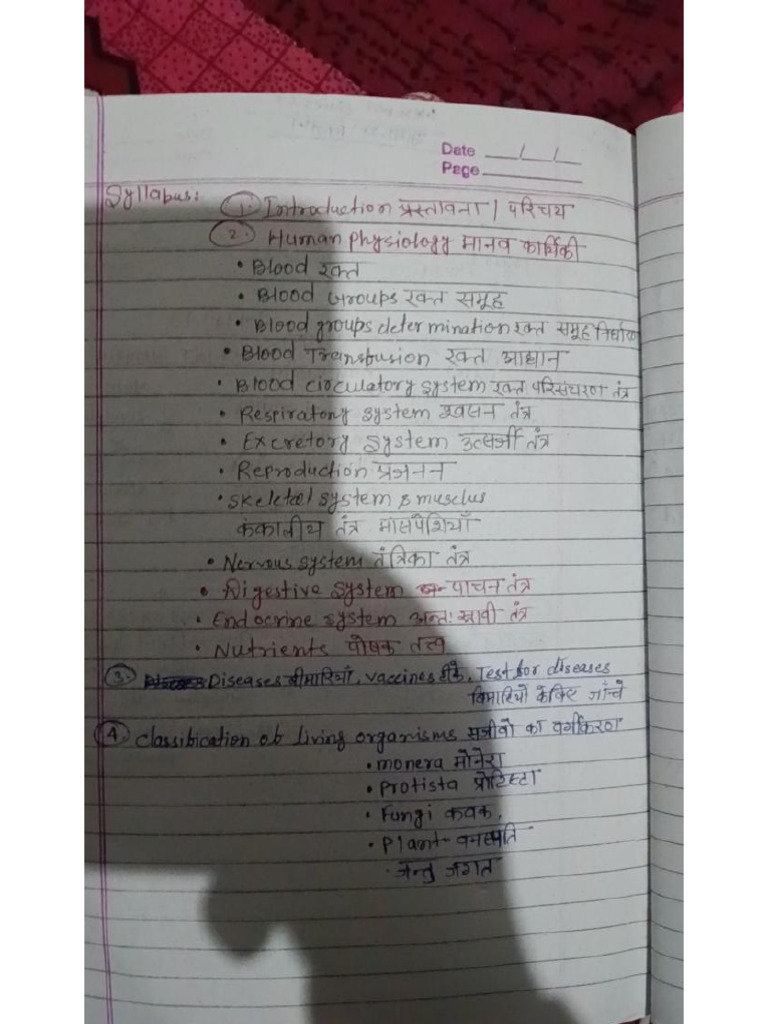 Date / /
Page
Syllabus:
1. Introduction प्रस्तावना / परिचय
2. Human physiology मानव कार्यिकी
• Blood रक्त
• Blood Groups रक्त समूह
• Blood groups determination रक्त समूह निर्धारण
• Blood Transfusion रक्त आधान
• Blood circulatory system रक्त परिसंचरण तंत्र
• Respiratory system श्वसन तंत्र
• Excretory system उत्सर्जी तंत्र
• Reproduction प्रजनन
• Skeletel system & musclus
कंकालीय तंत्र मांसपेशियाँ
• Nervous system तंत्रिका तंत्र
• Digestive system पाचन तंत्र
• Endocrine system अन्तः स्रावी तंत्र
• Nutrients पोषक तत्व
3. Diseases बीमारियाँ, vaccines टीके, Test for diseases
बिमारियो के लिए जाँचे
4. Classification of living organisms सजीवो का वर्गीकरण
• monera मोनेरा
• Protista प्रोटिस्टा
• Fungi कवक,
• Plant वनस्पति
• जन्तु जगत